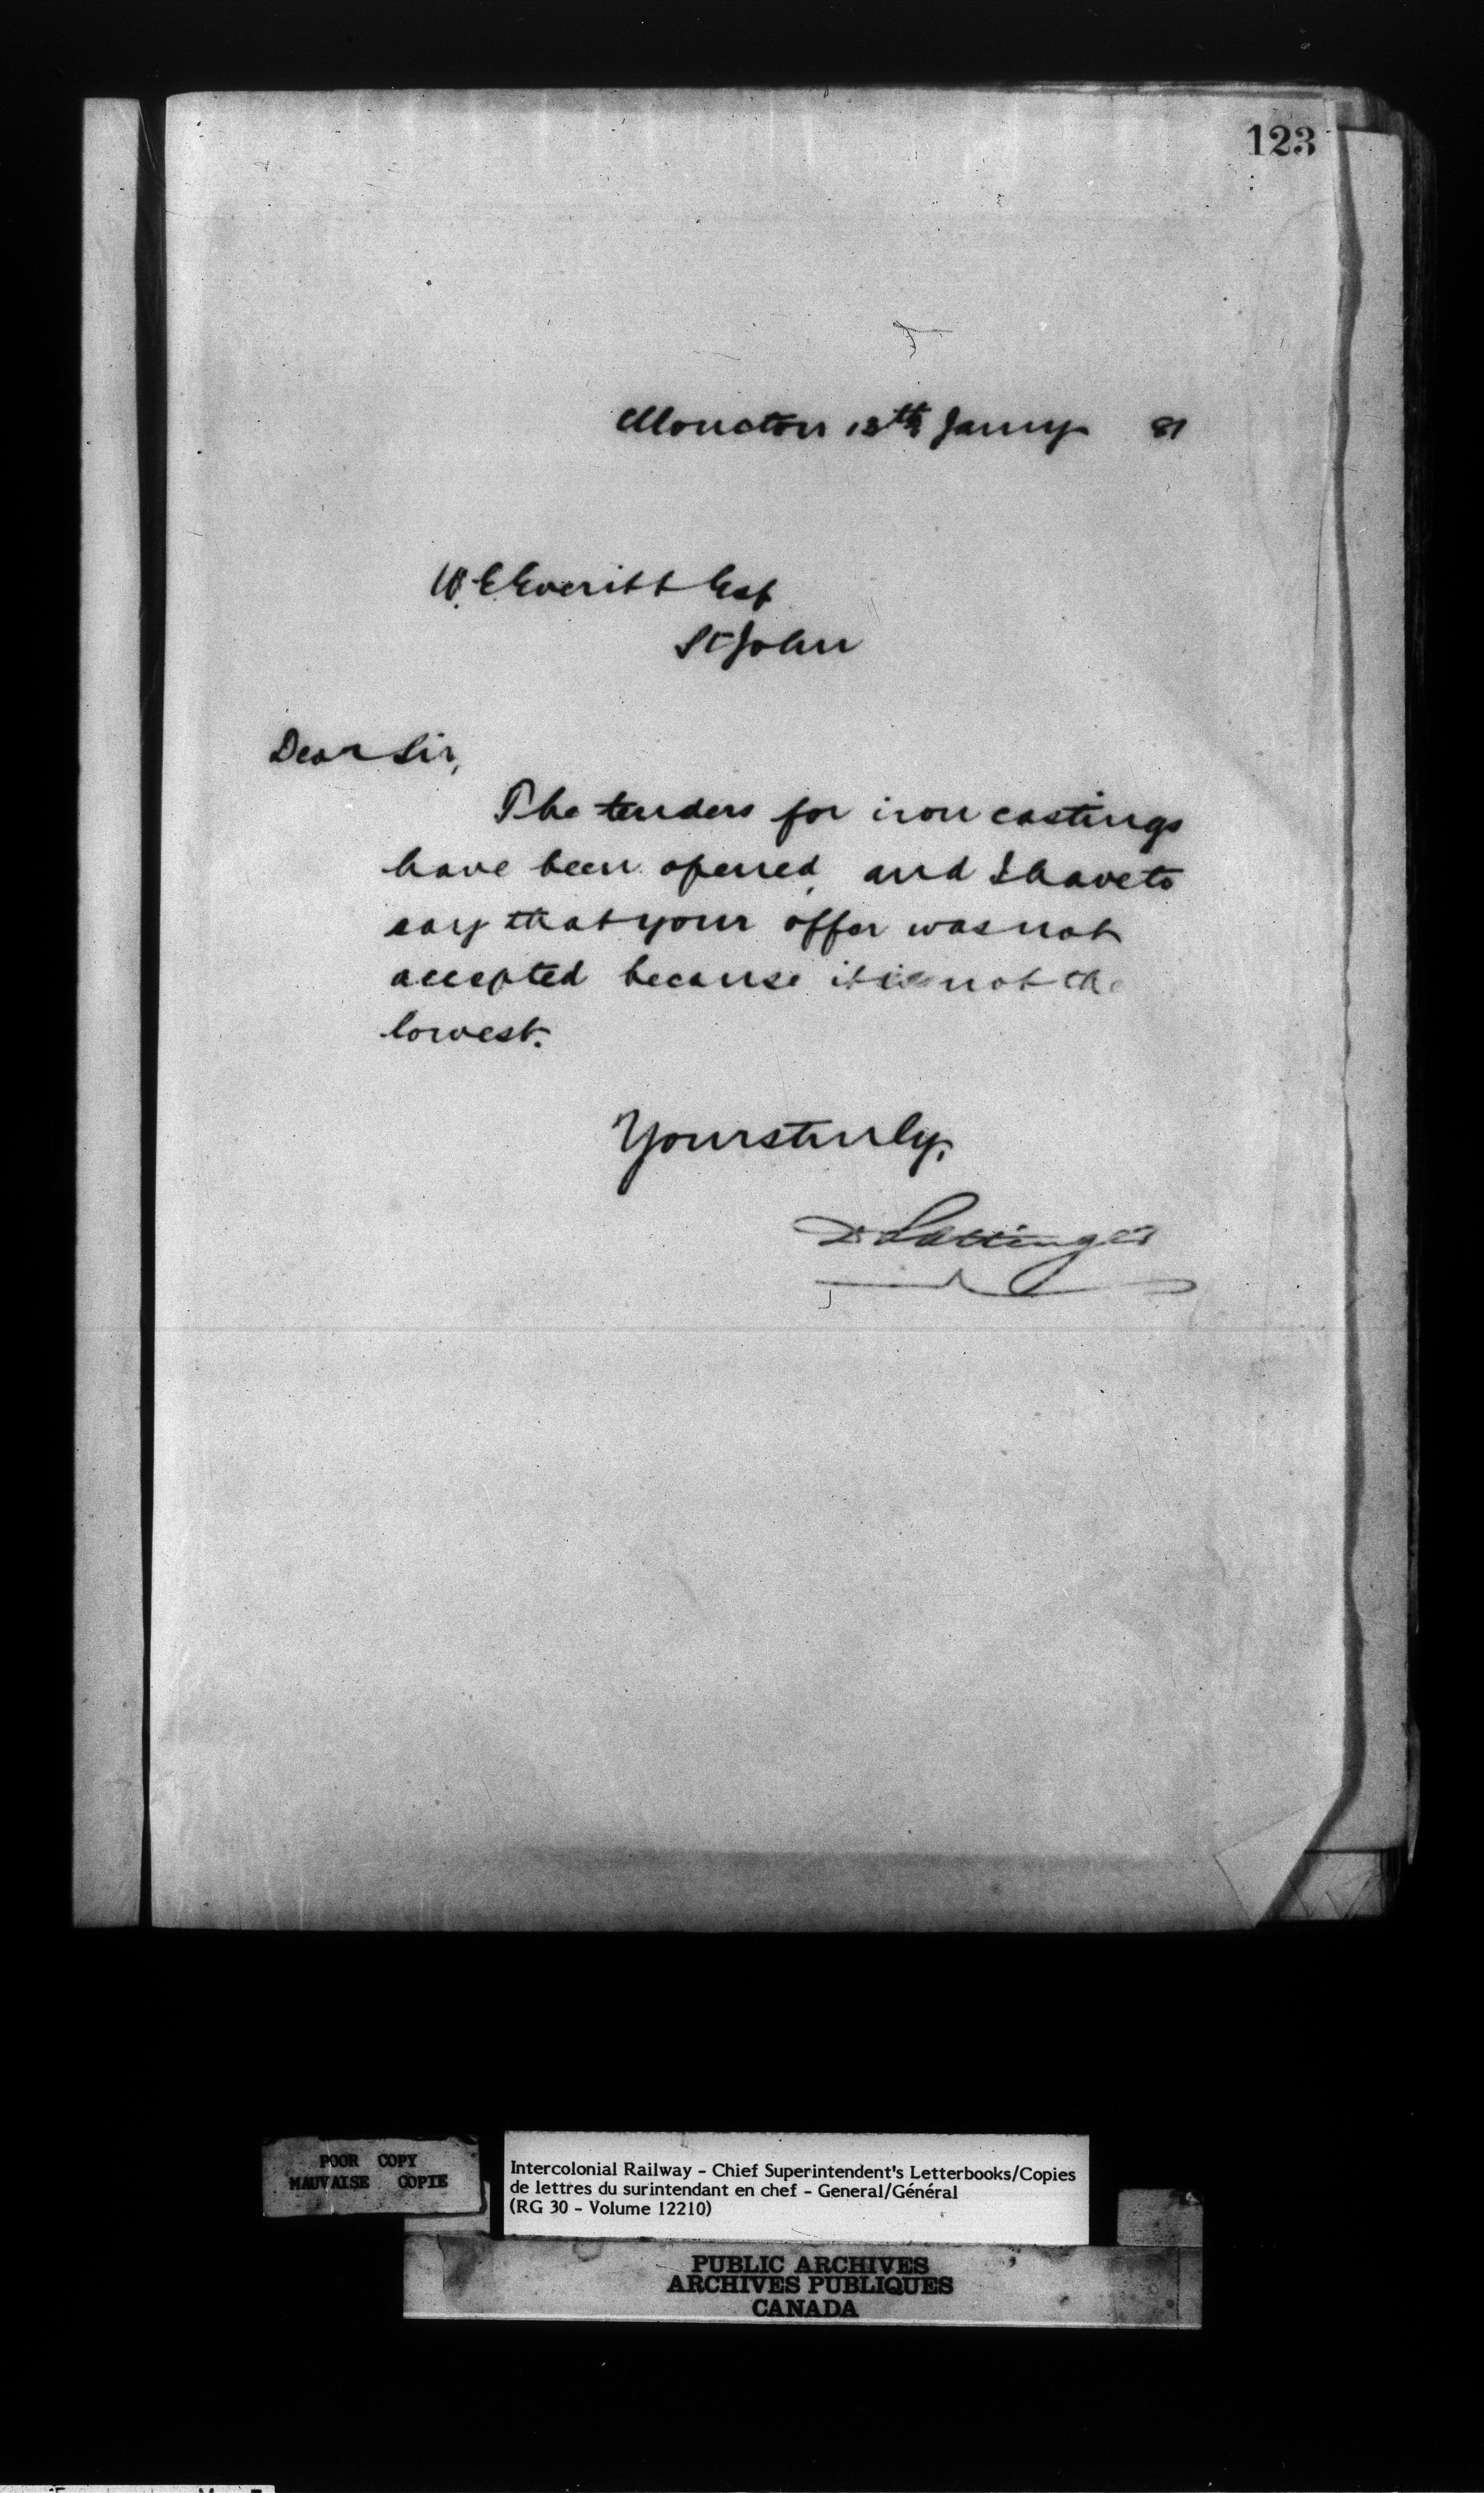 123
Moncton 13th Jany 81
W. E. Everitt Esq
St John
Dear Sir,
The tenders for iron castings
have been opened, and I have to
say that your offer was not
accepted because it is not the
lowest.
Yours truly,
D Pottinger
POOR COPY
MAUVAISE COPIE
Intercolonial Railway - Chief Superintendent's Letterbooks/Copies
de lettres du surintendant en chef - General/Général
(RG 30 - Volume 12210)
PUBLIC ARCHIVES
ARCHIVES PUBLIQUES
CANADA